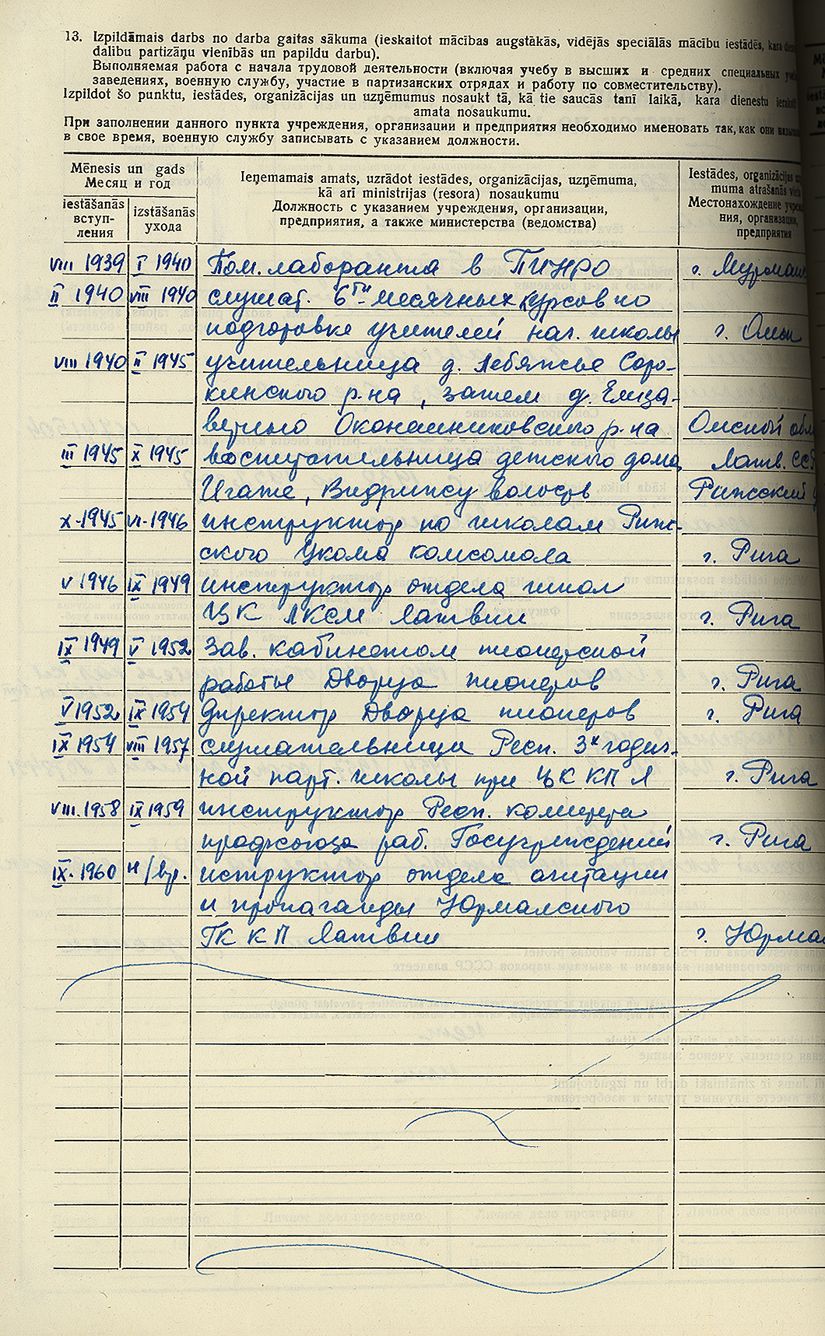 13. Izpildāmais darbs no darba gaitas sākuma (ieskaitot mācības augstākās, vidējās speciālās mācību iestādēs, kara
dalību partizāņu vienībās un papildu darbu).
Выполняемая работа с начала трудовой деятельности (включая учебу в высших и средних специальных
заведениях, военную службу, участие в партизанских отрядах и работу по совместительству).
Izpildot šo punktu, iestādes, organizācijas un uzņēmumus nosaukt tā, kā tie saucās tanī laikā, kara dienestu
amata nosaukumu.
При заполнении данного пункта учреждения, организации и предприятия необходимо именовать так, как они
в свое время, военную службу записывать с указанием должности.
Mēnesis un gads
Месяц и год
iestāšanās
вступ-
ления
izstāšanās
ухода
Ieņemamais amats, uzrādot iestādes, organizācijas, uzņēmuma,
kā arī ministrijas (resora) nosaukumu
Должность с указанием учреждения, организации,
предприятия, а также министерства (ведомства)
Iestādes, organizācijas
muma atrašanās
Местонахождение
ния, организации,
предприятия
VIII 1939 I 1940 Пом. лаборанта в ПИНРО г.
II 1940 VIII 1940 слушат. 6ти месячных курсов по
подготовке учителей нач. школы г.
VIII 1940 II 1945 учительница д. Лебяжье Соро-
кинского р-на, затем д. Елиза-
ветино Оконешниковского р-на Омской обл
III 1945 X 1945 воспитательница детского дома Латв. ССР
Игате, Видрижу волость Рижский
X-1945 VI-1946 инструктор по школам Риж-
ского Укома комсомола г. Рига
V 1946 IX 1949 инструктор отдела школ
ЦК ЛКСМ Латвии г. Рига
IX 1949 V 1952 Зав. кабинетом пионерской
работы Дворца пионеров г. Рига
V 1952 IX 1954 директор Дворца пионеров г. Рига
IX 1954 VIII 1957 слушательница Респ. 3х годич-
ной парт. школы при ЦК КП Л г. Рига
VIII. 1958 IX 1959 инструктор Респ. комитета
профсоюза раб. Госучреждений г. Рига
IX. 1960 н/вр. иструктор отдела агитации
и пропаганды Юрмалского
ГК КП Латвии г.